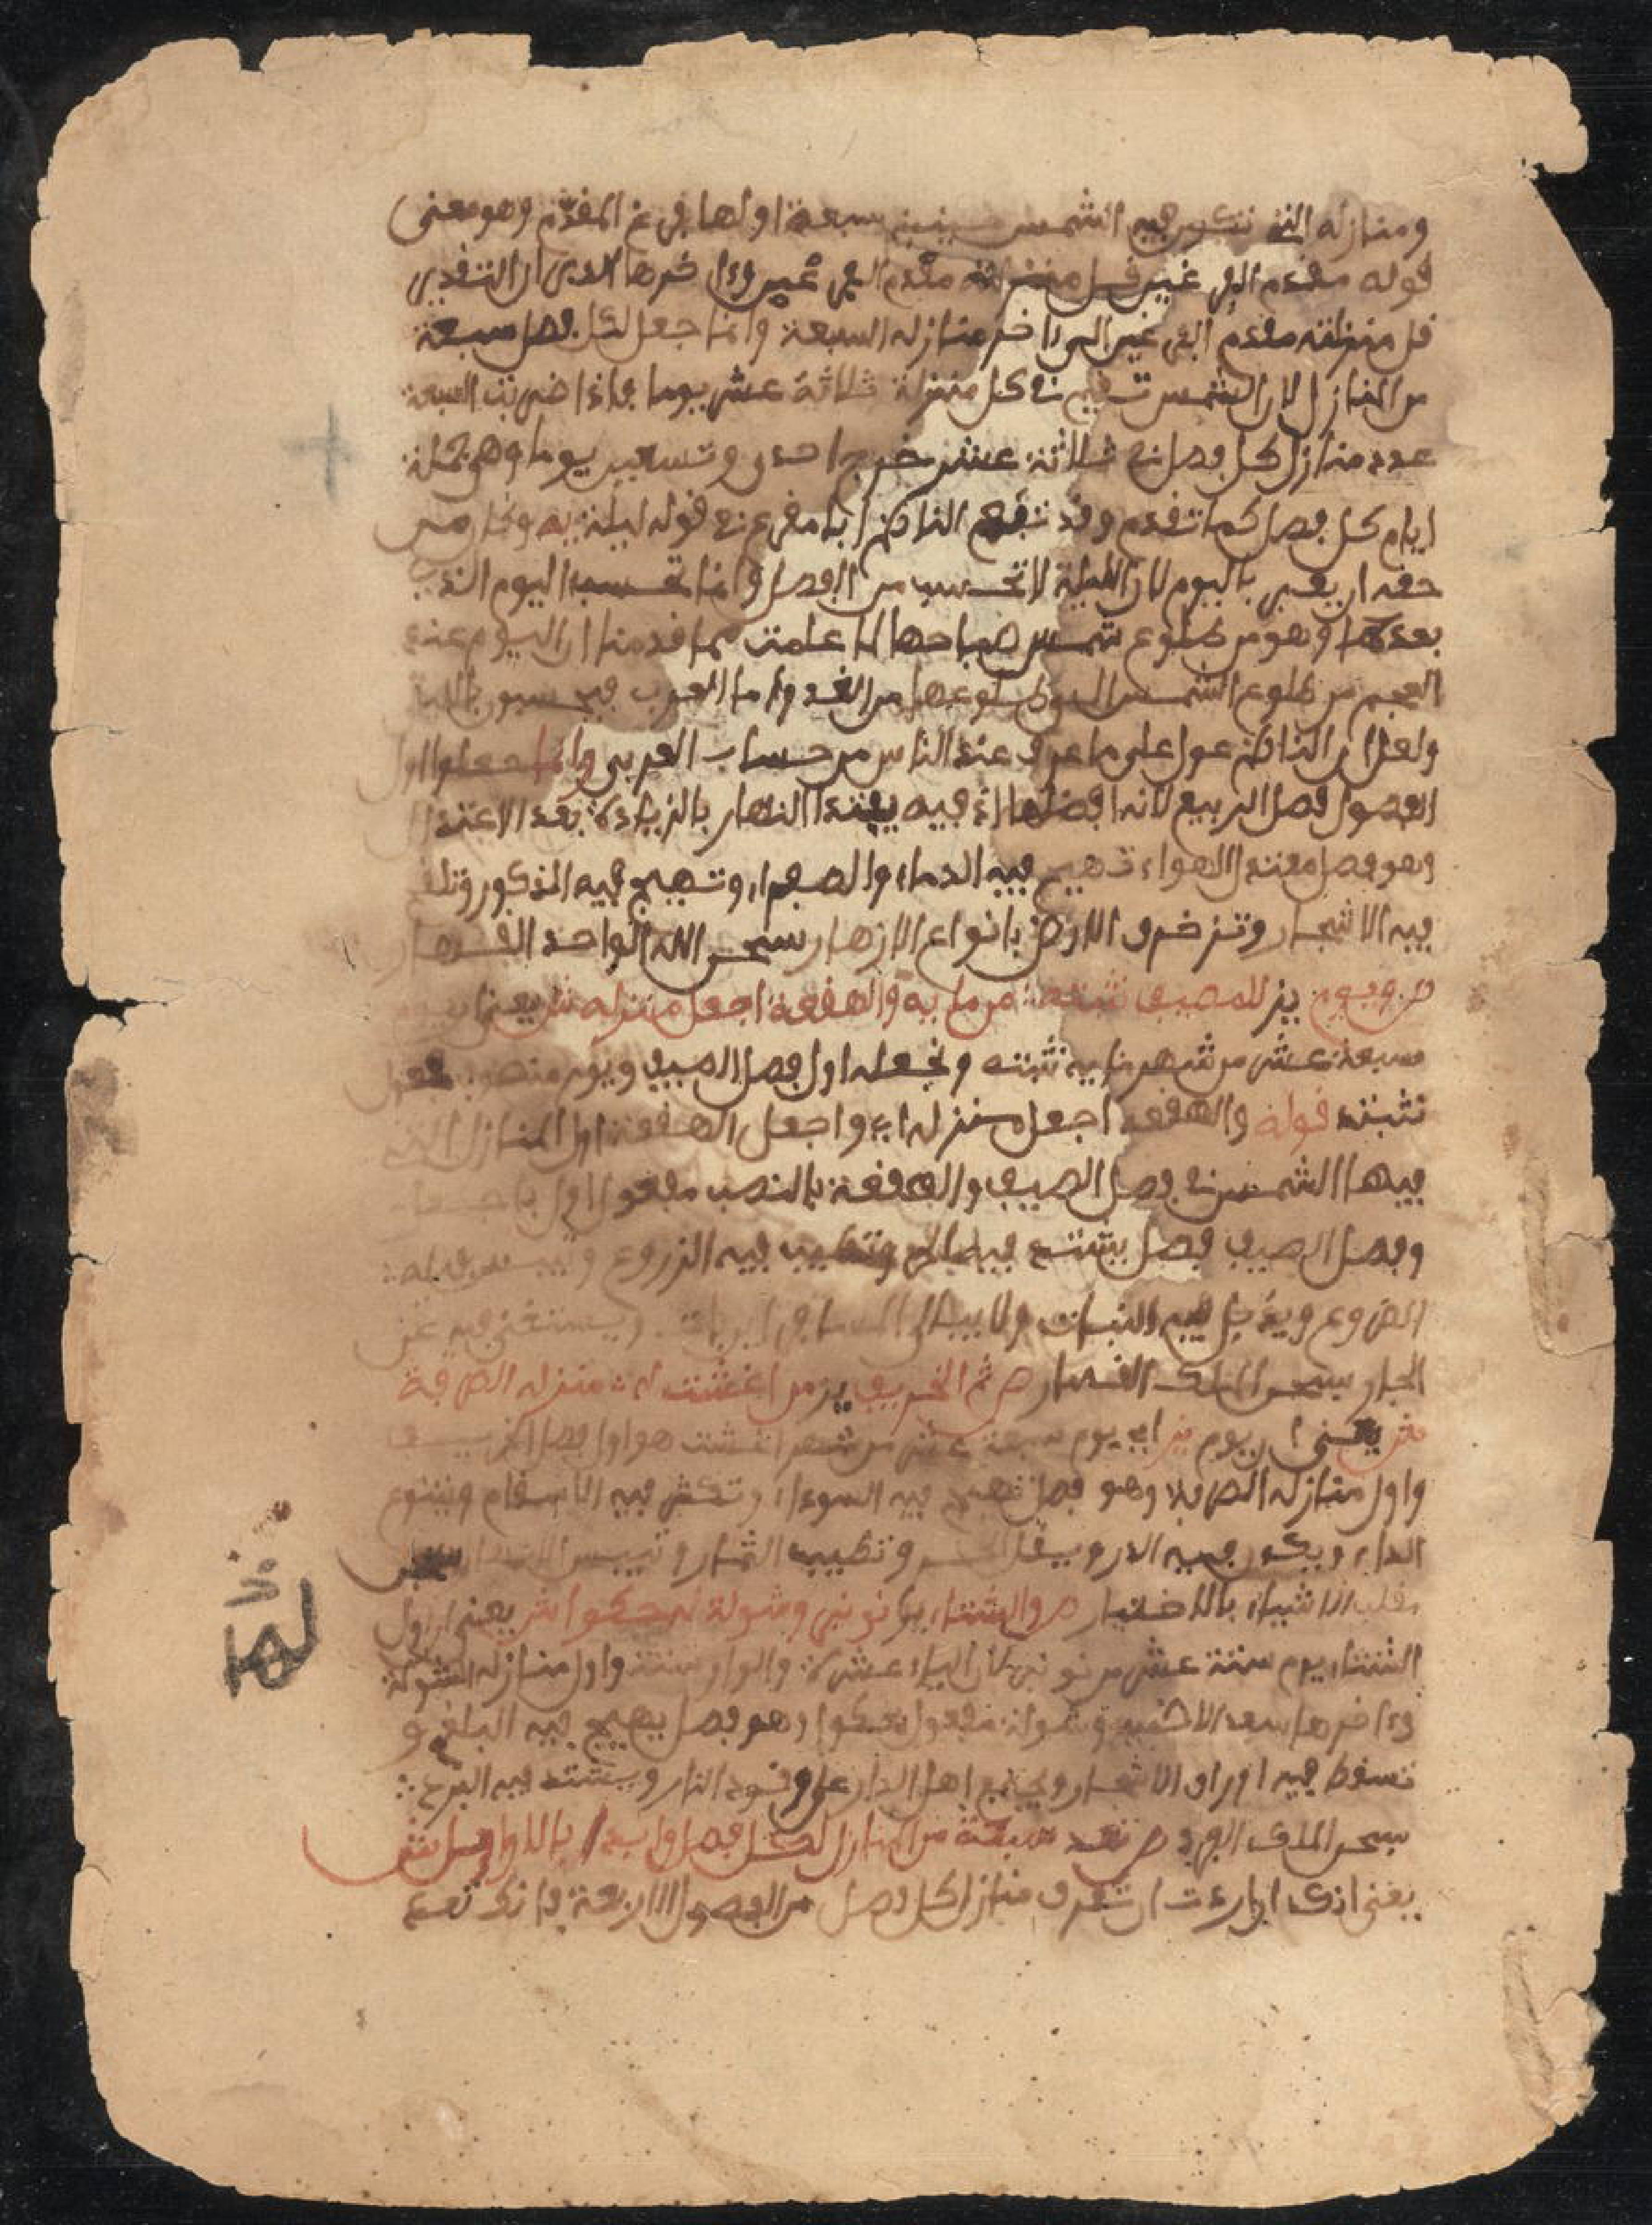 ومنازله التي تكون فيه الشمس سبعة اولها فرغ المقدم وهو معنى
قوله مقدم الفرغين قل منزلته مقدم الفرغين وءاخرها الدبران التقدير
قل منزلته مقدم الفرغين الى ءاخر منازله السبعة وانما جعل لكل فصل سبعة
من المنازل لان الشمس تقيم في كل منزلة ثلاثة عشر يوما فاذا ضربت السبعة
عدد منازل كل فصل في ثلاثة عشر خرج احدى وتسعين يوما وهي جملة
ايام كل فصل كما تقدم وقد الناظم في قوله ليلة يه وكان من
حقه ان يعبر باليوم لان الليلة لا تحسب من الفصل وانما تحسب اليوم الذي
بعدها وهو من طلوع شمس صباحها لما علمت مما قدمنا ان اليوم عند
العجم من طلوع الشمس الى طلوعها من الغد واما العرب فيحسبون بالليل
ولعل ان الناظم عول على ما عرف عند الناس من حساب العربي وانما جعلوا اول
الفصول فصل الربيع لانه افضلها اذ فيه يبتدا النهار بالزيادة بعد الاعتدال
وهو فصل معتدل الهواء تهيج فيه الدماء والصفراء وتهيج فيه الذكور وتلقح
فيه الاشجار وتزخرف الارض بانواع الازهار سبحن الله الواحد القهار
ص ويوم يز للمصيف ثبته من مايه والهقعة اجعل منزله ش يعني يوم
سبعة عشر من شهر مايه ثبته وتجعله اول فصل الصيف ويوم منصوب بفعل
ثبته قوله والهقعة اجعل منزله اي واجعل الهقعة اول المنازل التي
فيها الشمس في فصل الصيف والهقعة بالنصب مفعول اول باجعل
وفصل الصيف فصل يشتد فيه وتطيب فيه الزروع
الضروع فيه النبات ويستغنى فيه عن
سبحن الملك القهار ص ثم الخريف يز من اغشت له منزله الصرفة
يعني ان يوم يز اي يوم سبعة عشر من شهر اغشت هو اول فصل الخريف
واول منازله الصرفة وهو فصل تهيج فيه السوداء وتكثر فيه الاسقام ويتنوع
الداء ويكون فيه وتطيب الثمار وتيبس الاشجار سبحن
مقلب الاشياء بالاختيار ص والشتاء يو نونبر وشولة له حكوا ش يعني ان اول
الشتاء يوم ستة عشر من نونبر لان الياء عشرة والواو ستة واول منازله الشولة
وءاخرها سعد الاخبية وشولة مفعول بحكوا وهو فصل يهيج فيه البلغم و
تسقط فيه اوراق الاشجار ويجتمع اهل الدار على وقود النار ويشتد فيه البرد
سبحن الملك الفرد ص تعد سبعة من المنازل لكل فصل وابدا بالاوايل ش
يعني انك اذا اردت ان تعرف منازل كل فصل من الفصول الاربعة فانك تعد